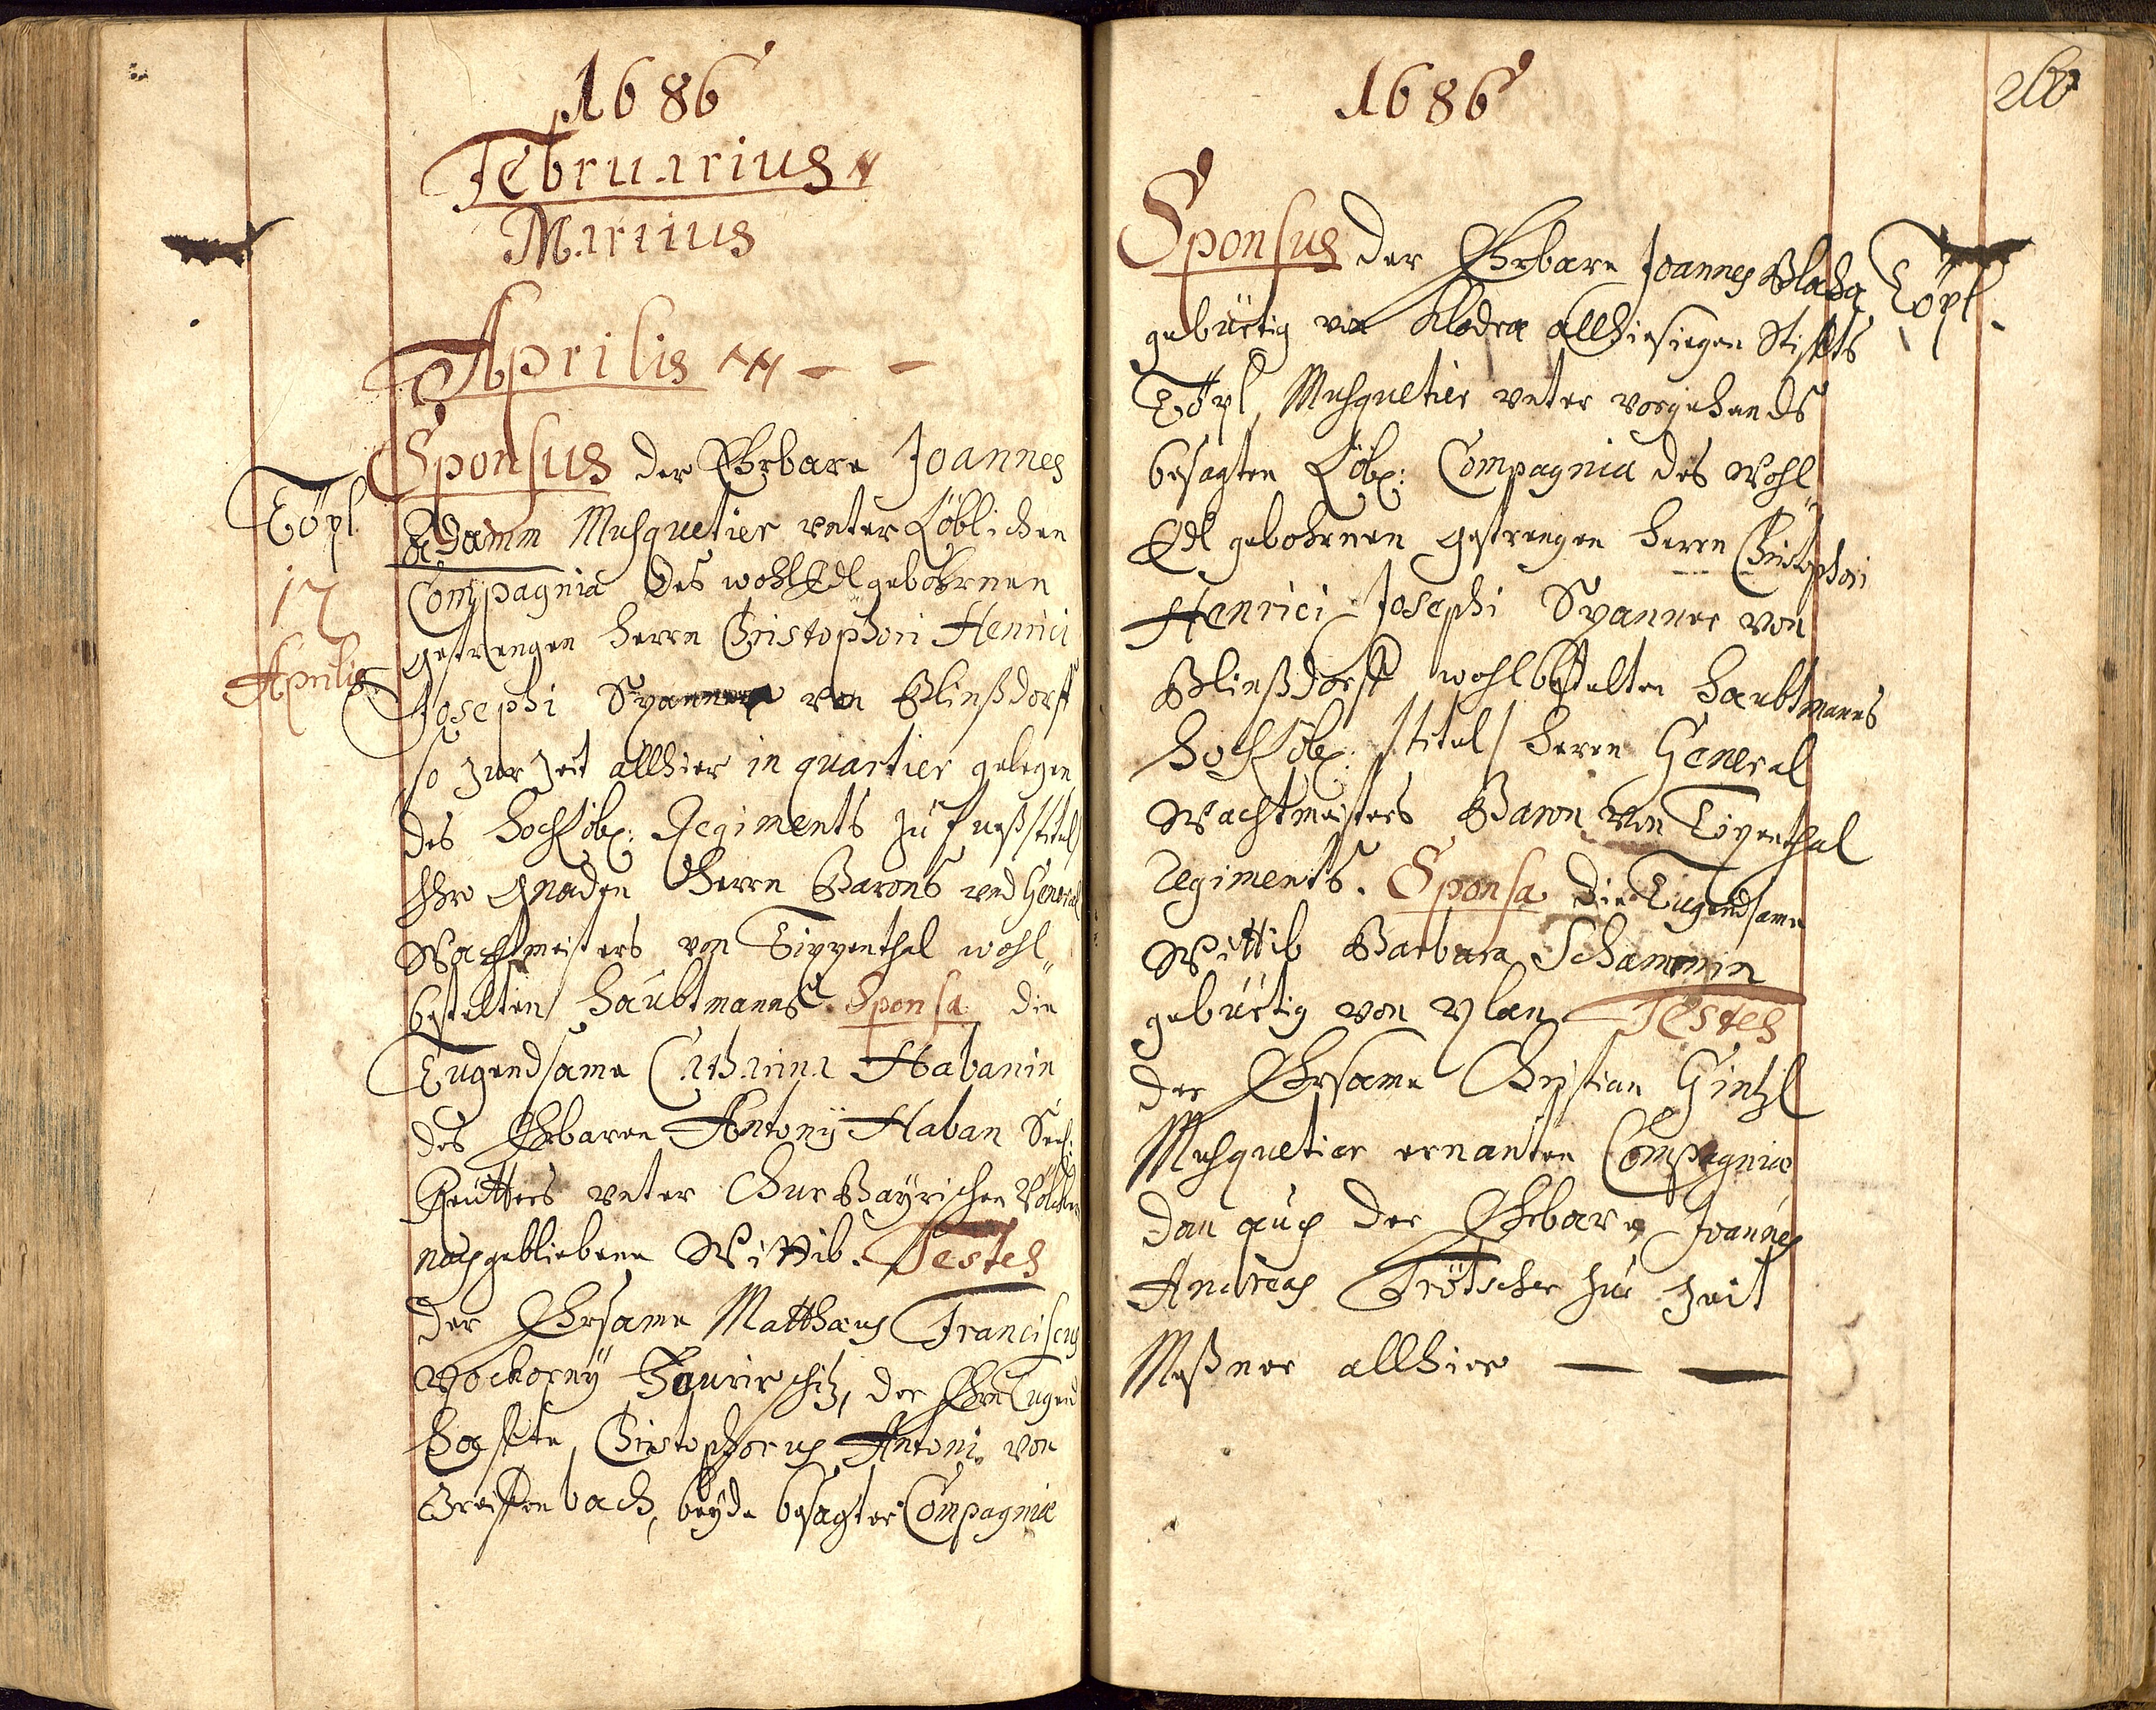 1686
Februarius
Martius
Aprilis
Töpl
17
Aprilis
Sponsus der Ehrbare Joannes
Adamm Musquetier unter Löblichen
Compagnia des wohl Edlgebohrnen
gestrengen herrn Christophori Henrici
Josephi Spanner von Blinßdorff
so zur Zeit allhier in quartier gelegen
des Hochlöbl: Regiments zu fueß /titul/
Ihro Gnaden Herrn Barons und General
Wachtmeisters von Tippenthal wohl„
bestelten haubtmanns. Sponsa die
Tugendsame Catharina Habanin
des Ehrbaren Antonÿ Haban
Reütters unter ChurBayrischen Völckern
nachgebliebene Wittib. Testes
der Ehrsame Matthaeus Franciscus
Wockornÿ Fourirschitz, der Ehrn Tugend
haffte Christophorus Antoni von
Greiffenbach, beyde besagter Compagniae
1686
Sponsus der Ehrbare Joannes Blaha
Töpl.
gebürtig von Kladra allhiesiegen Stiffts
Töpl, Musquetier unter vorgehends
besagten Löbl: Compagnia des Wohl„
Edl gebohrnen gestrengen Herrn Christophori
Henrici Josephi Spanner von
Blinßdorff wohlbestelten Haubtmanns
HochLöbl: /titul/ Herrn General
Wachtmeisters Baron von Tippenthal
Regiments. Sponsa die Tugendsame
Wittib Barbara Schammin
gebürtig von Plan Testes
der Ehrsame Christian Hintzl
Musquetier ernanten Compagniae
dan auch der Ehrbare Joannes
Andreas Trötscher zur Zeit
Meßner allhier